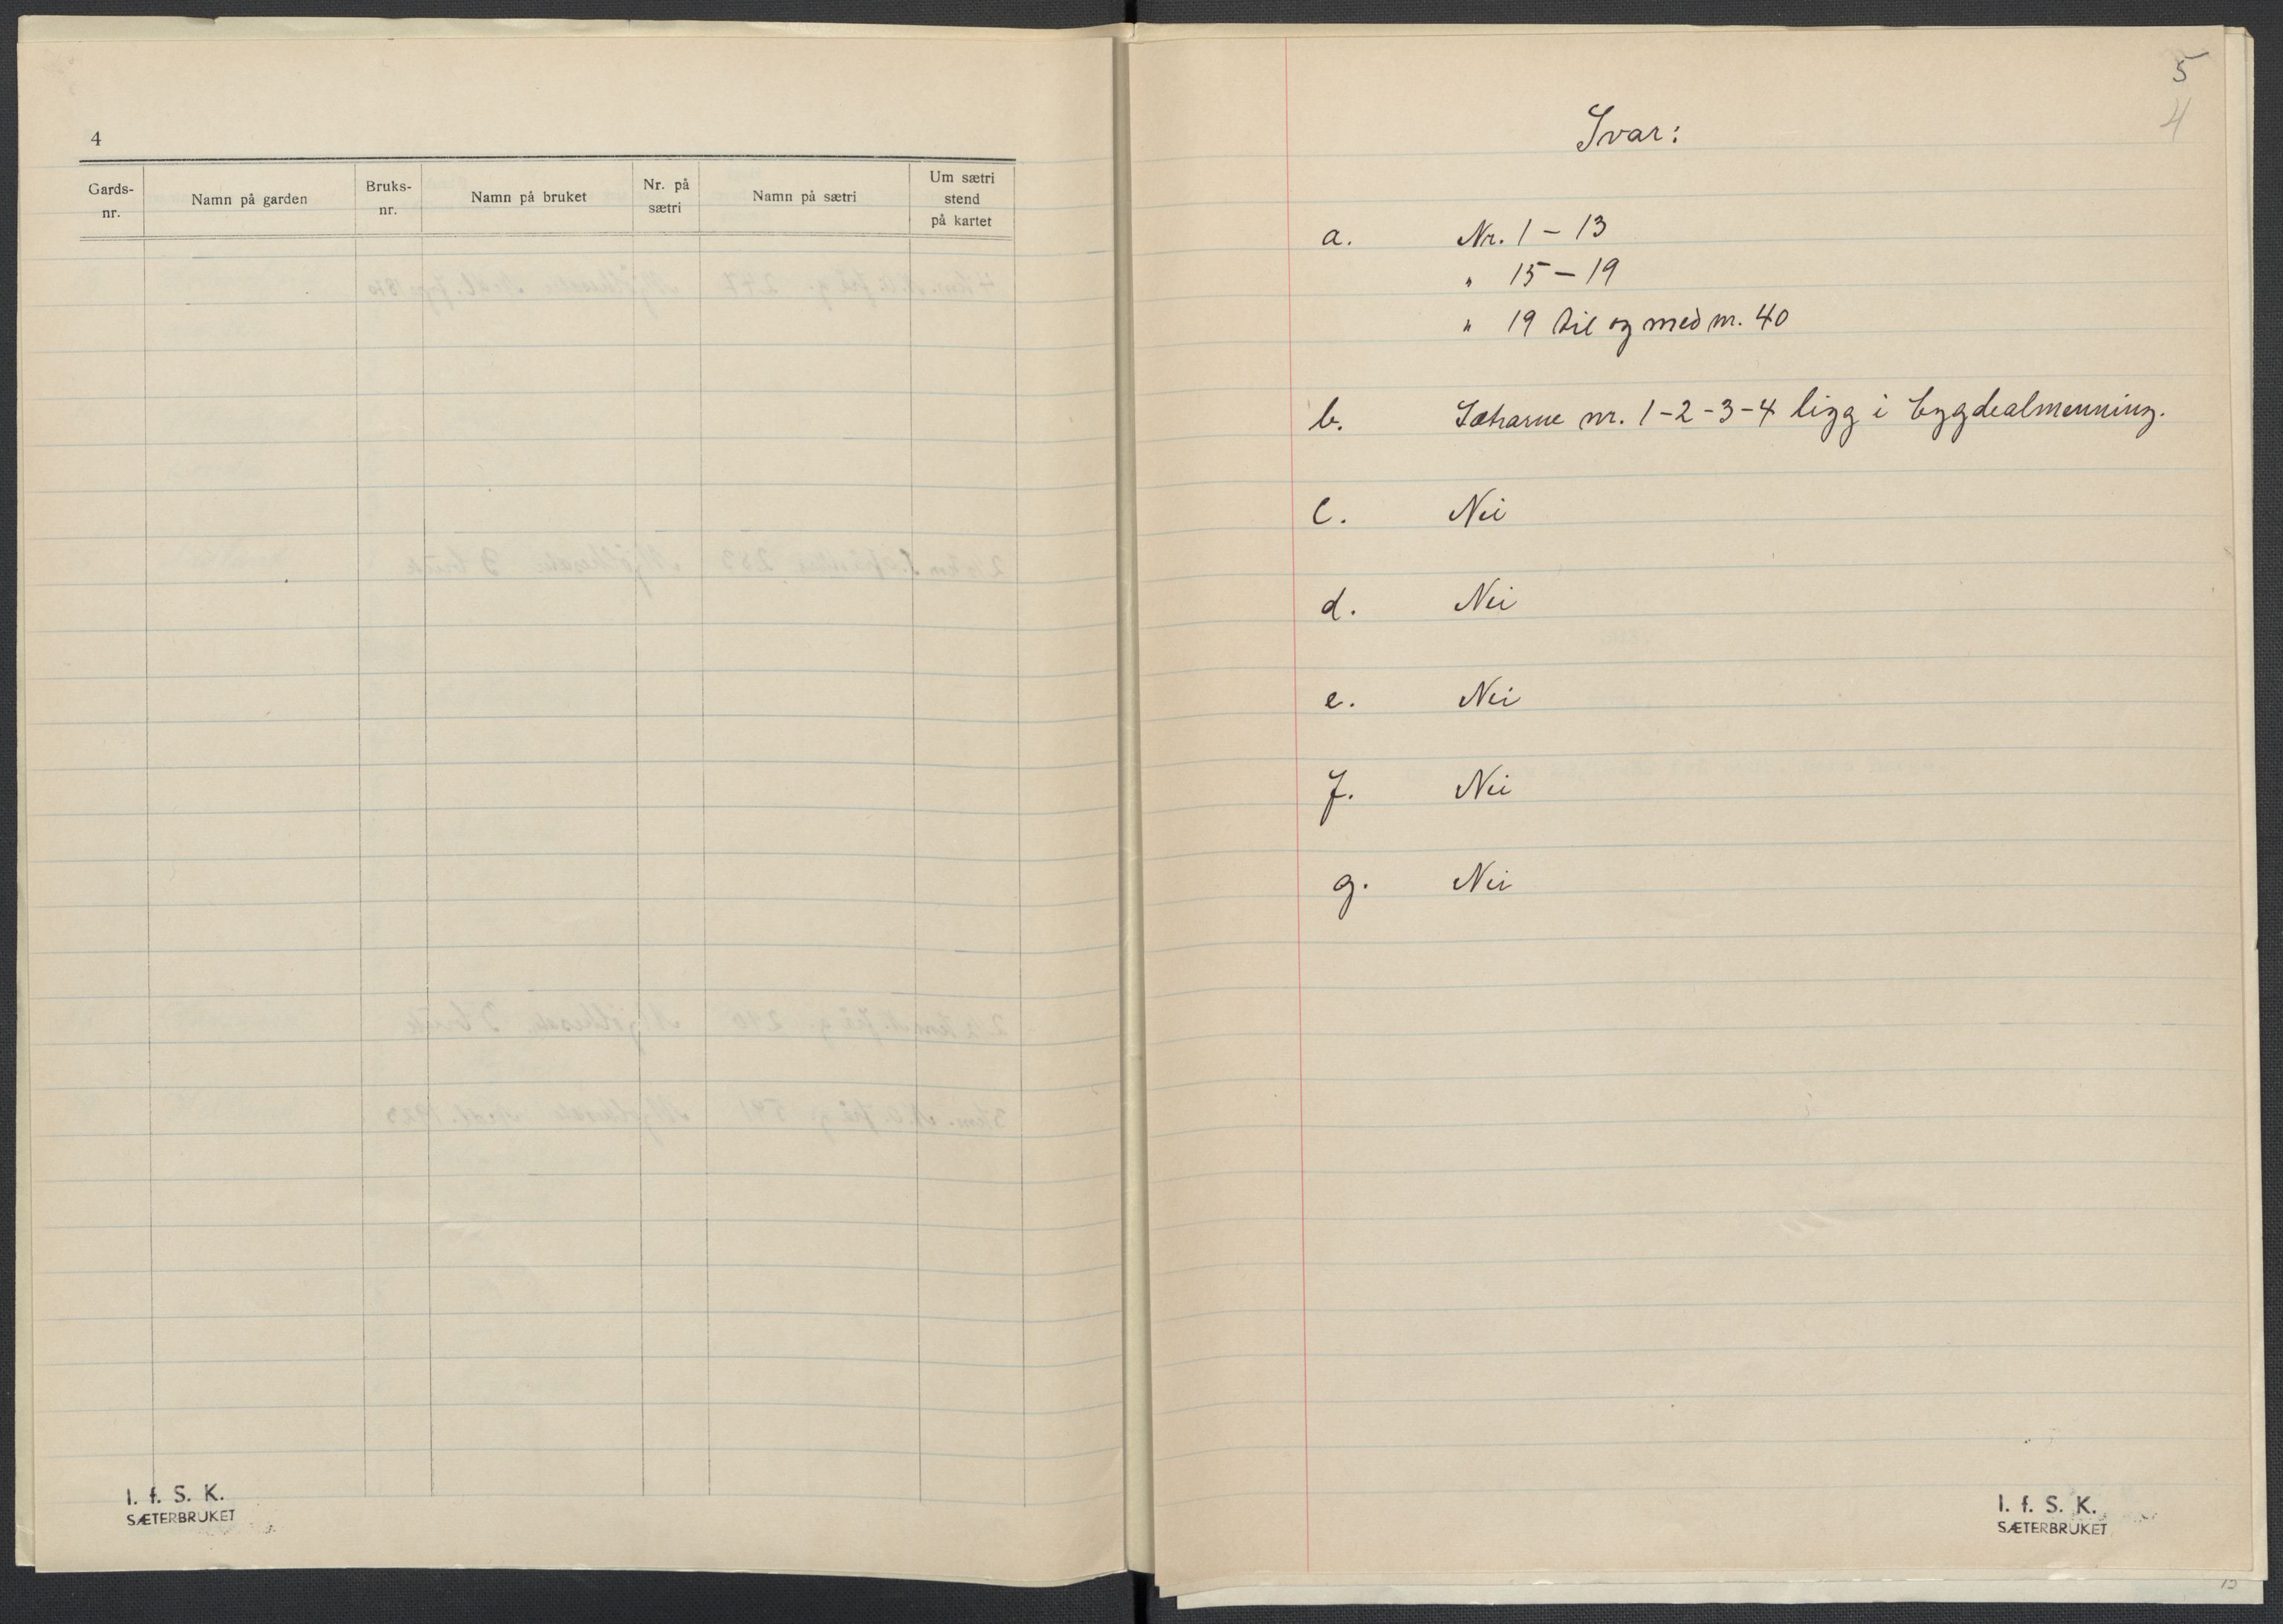 4
Gards-
nr.
Namn på garden
Bruks-
nr.
Namn på bruket
Nr. på
sætri
Namn på sætri
Um sætri
stend
på kartet
I. f. S. K.
SÆTERBRUKET
5
4
Svar:
a. Nr. 1 – 13
" 15 – 19
" 19 til og med nr. 40
b. Sætrarne nr. 1-2-3-4 ligg i bygdealmenning.
c. Nei
d. Nei
e. Nei
f. Nei
g. Nei
I. f. S. K.
SÆTERBRUKET
15